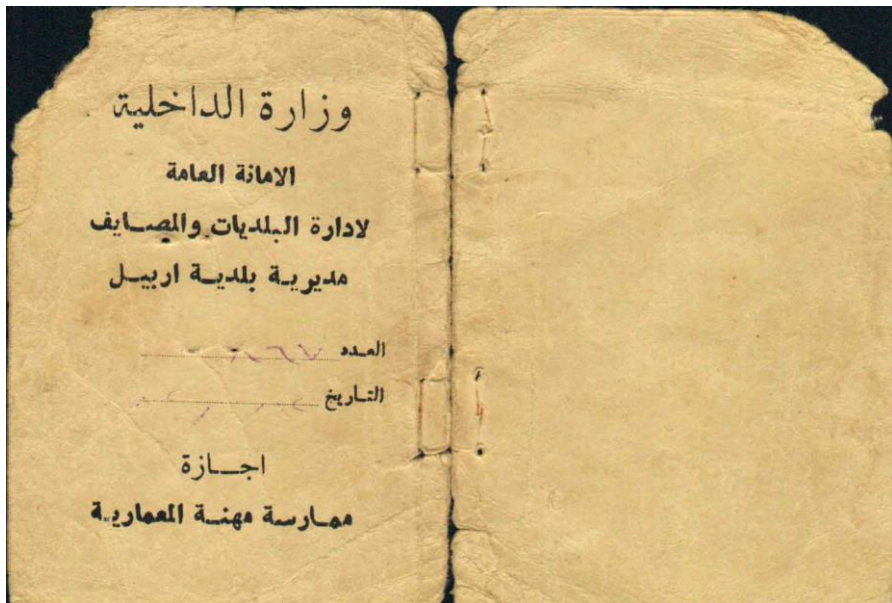 وزارة الداخلية
الامانة العامة
لادارة البلديات والمصايف
مديرية بلدية اربيل
العدد
التاريخ
اجازة
ممارسة مهنة المعمارية